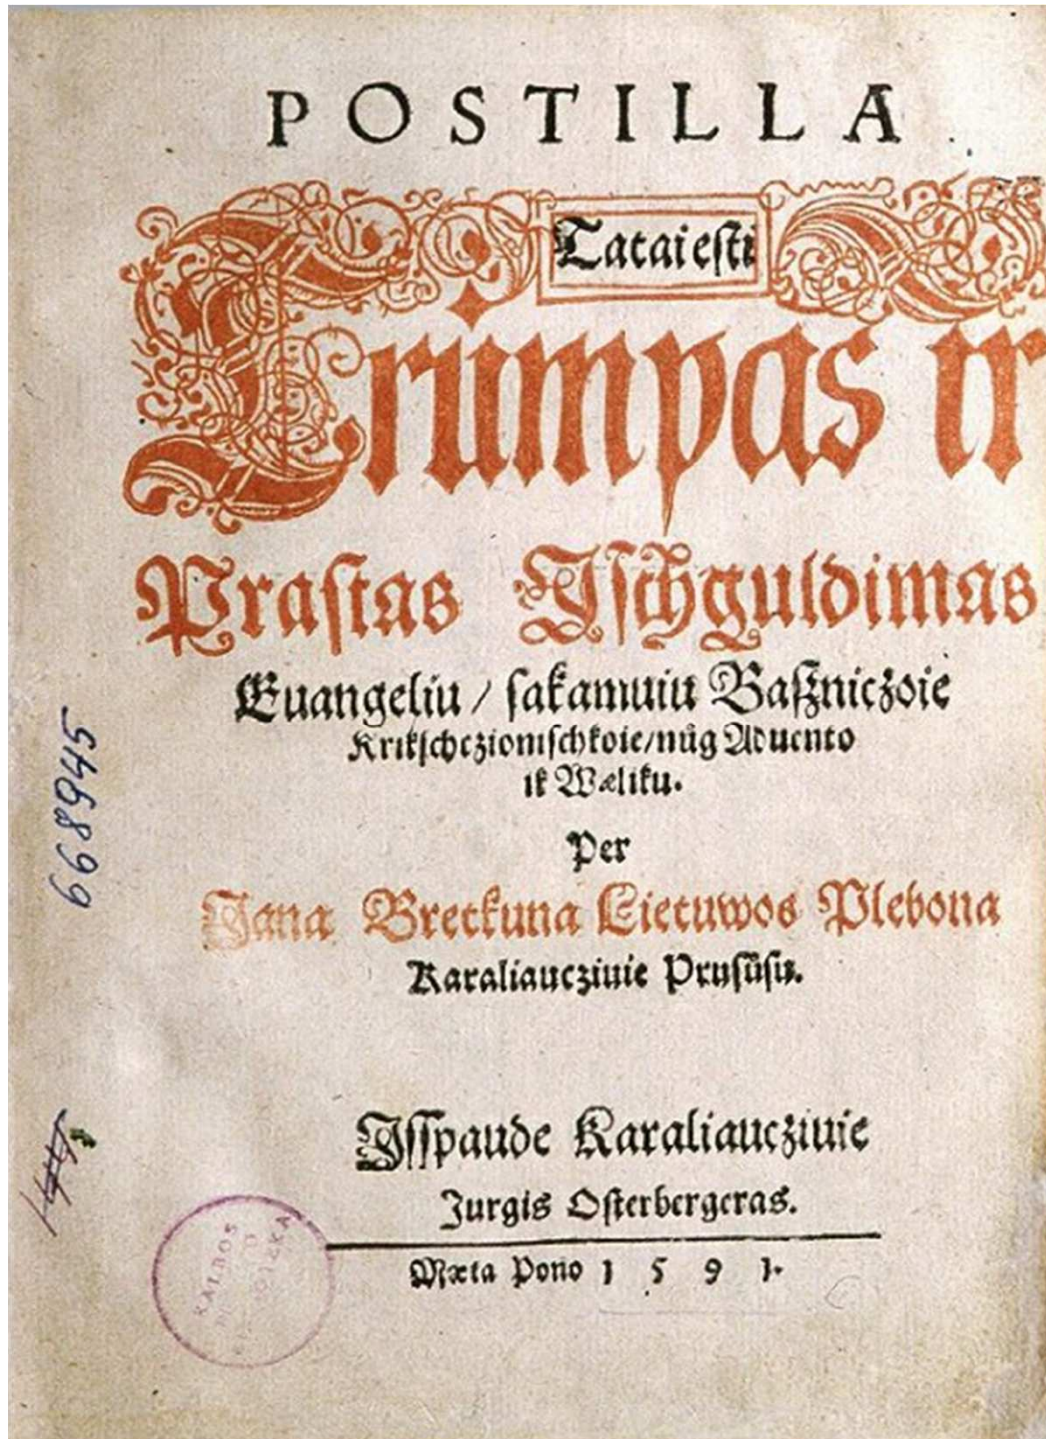 POSTILLA
Tatai esti
Trumpas ir
Prastas Ischguldimas
Euangeliu / sakamuiu Baszniczoie
Krikschczionischkoie/nůg Aduento
ik Wæliku.
Per
Jana Bretkuna Lietuwos Plebona
Karaliaucziuie Prusůsu.
Isspaude Karaliaucziuie
Jurgis Osterbergeras.
Mæta Pono 1591.
548945
KALBOS